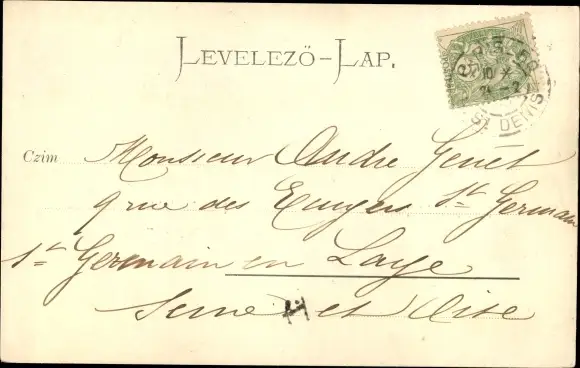 LEVELEZŐ-LAP.
PARIS-60
10
ST DENIS
Czim
Monsieur Andre Genêt
9 rue des St Germain
St Germain en Laye
Seine et Oise